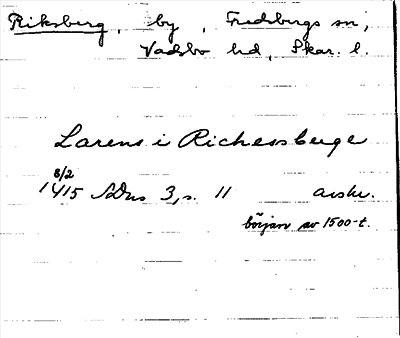 Riksberg, by, Fredsbergs sn,
Vadsbo hd, Skar. l.
Larens i Richessberge
8/2
1415 SDns 3, s. 11 avskr.
början av 1500-t.